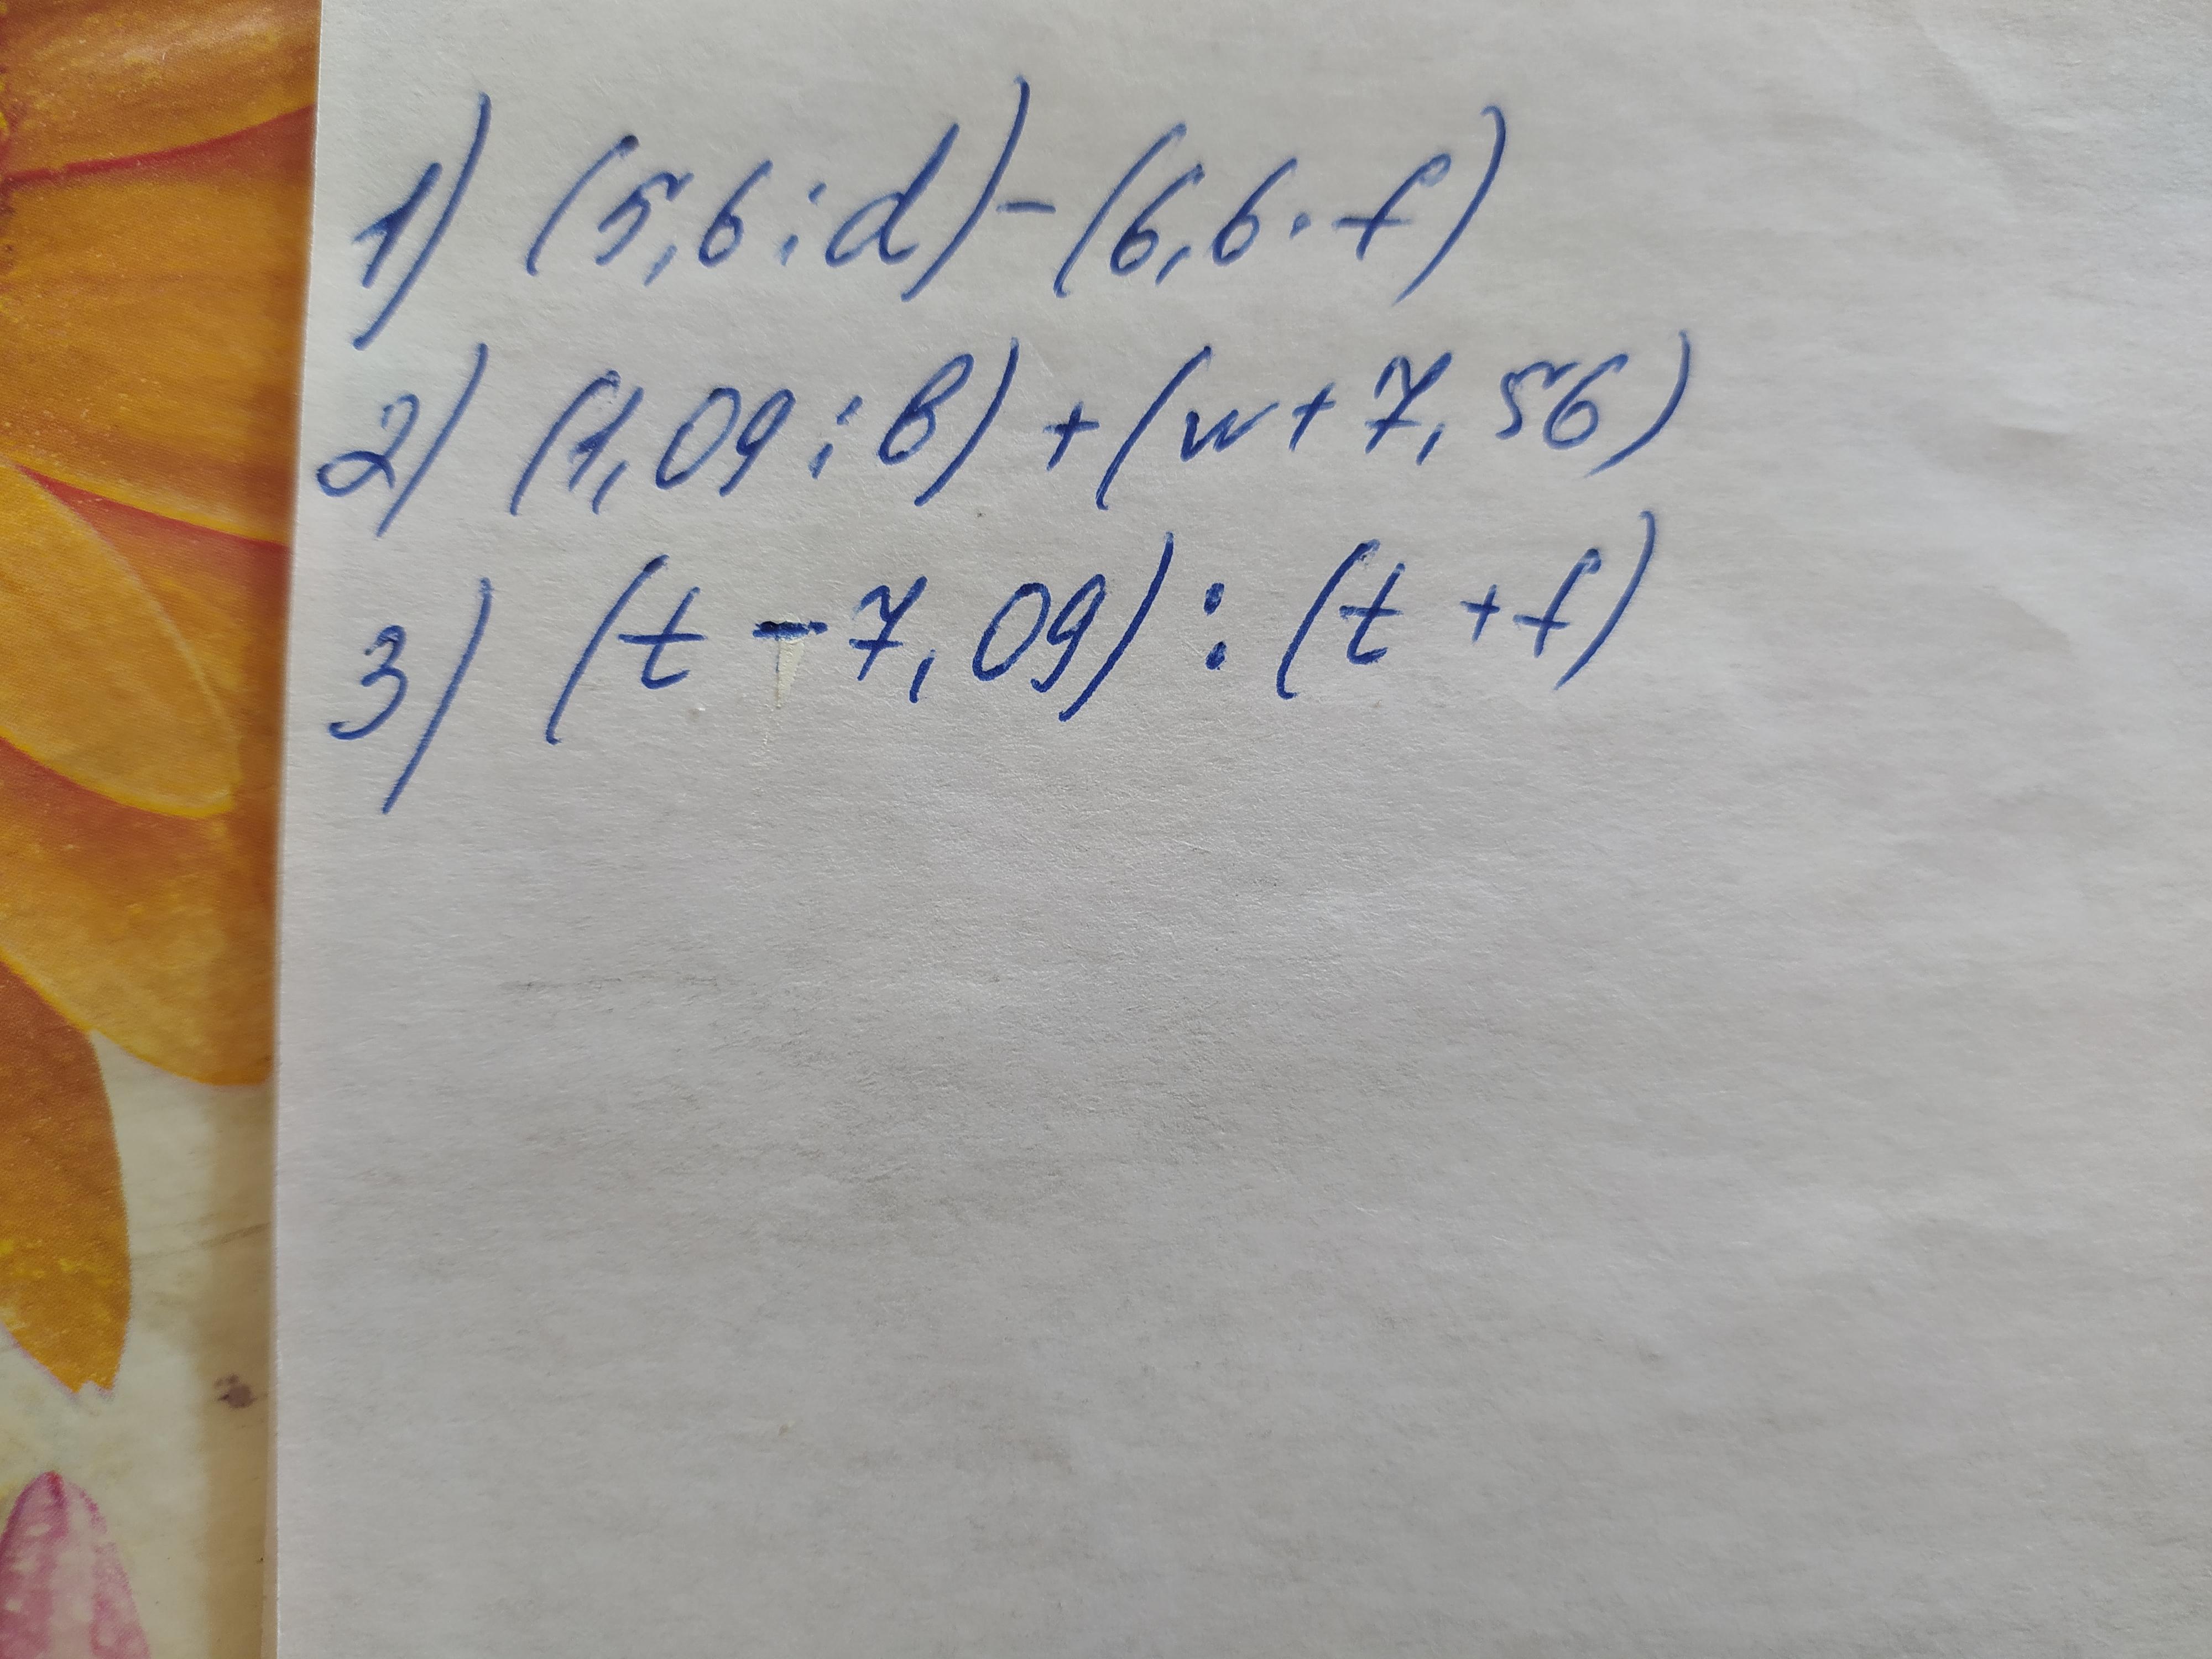 1) (5,6:d)-(6,6·f)
2) (1,09:в)+(w+7,56)
3) (t-7,09):(t+f)